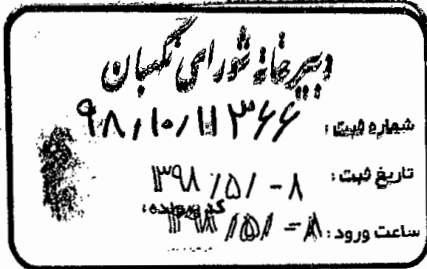 دبیرخانه شورای نگهبان
شماره ثبت: ۹۸/۱۰/۱۱۳۶۶
تاریخ ثبت: ۱۳۹۸/۵/-۸
کد پرونده:
ساعت ورود: ۱۳۹۸/۵/-۸